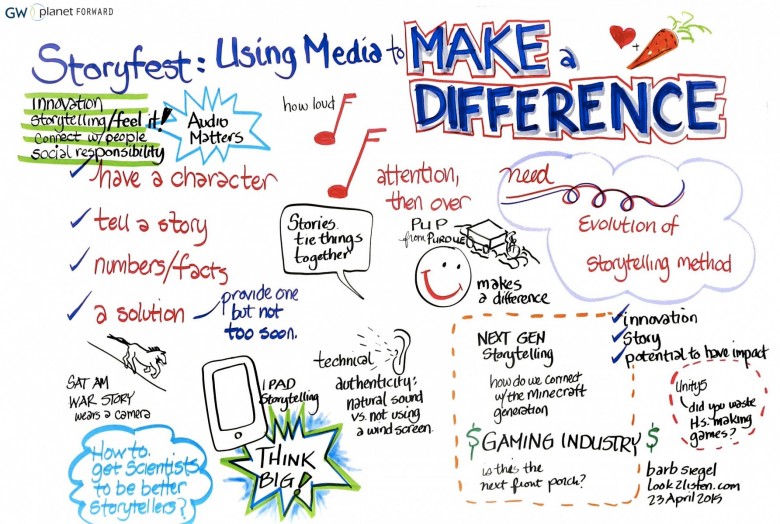 GW planet FORWARD
Storyfest: Using Media to MAKE a
DIFFERENCE
innovation
Storytelling/feel it!
connect w/people
social responsibility
Audio
Matters
how loud
have a character
tell a story
numbers/facts
a solution
provide one
but not
too soon.
attention,
then over
Stories
tie things
together
PUP
from PURDUE
makes
a difference
need
Evolution of
Storytelling method
innovation
Story
potential to have impact
SAT AM
WAR STORY
wears a camera
IPAD
Storytelling
technical
authenticity:
natural sound
vs. not using
a wind screen
NEXT GEN
Storytelling
how do we connect
w/the Minecraft
generation
$ GAMING INDUSTRY $
is this the
next front porch?
Unity5
did you waste
H.S. making
games?
How to
get Scientists
to be better
Storytellers?
THINK
BIG!
barb siegel
look2listen.com
23 April 2015